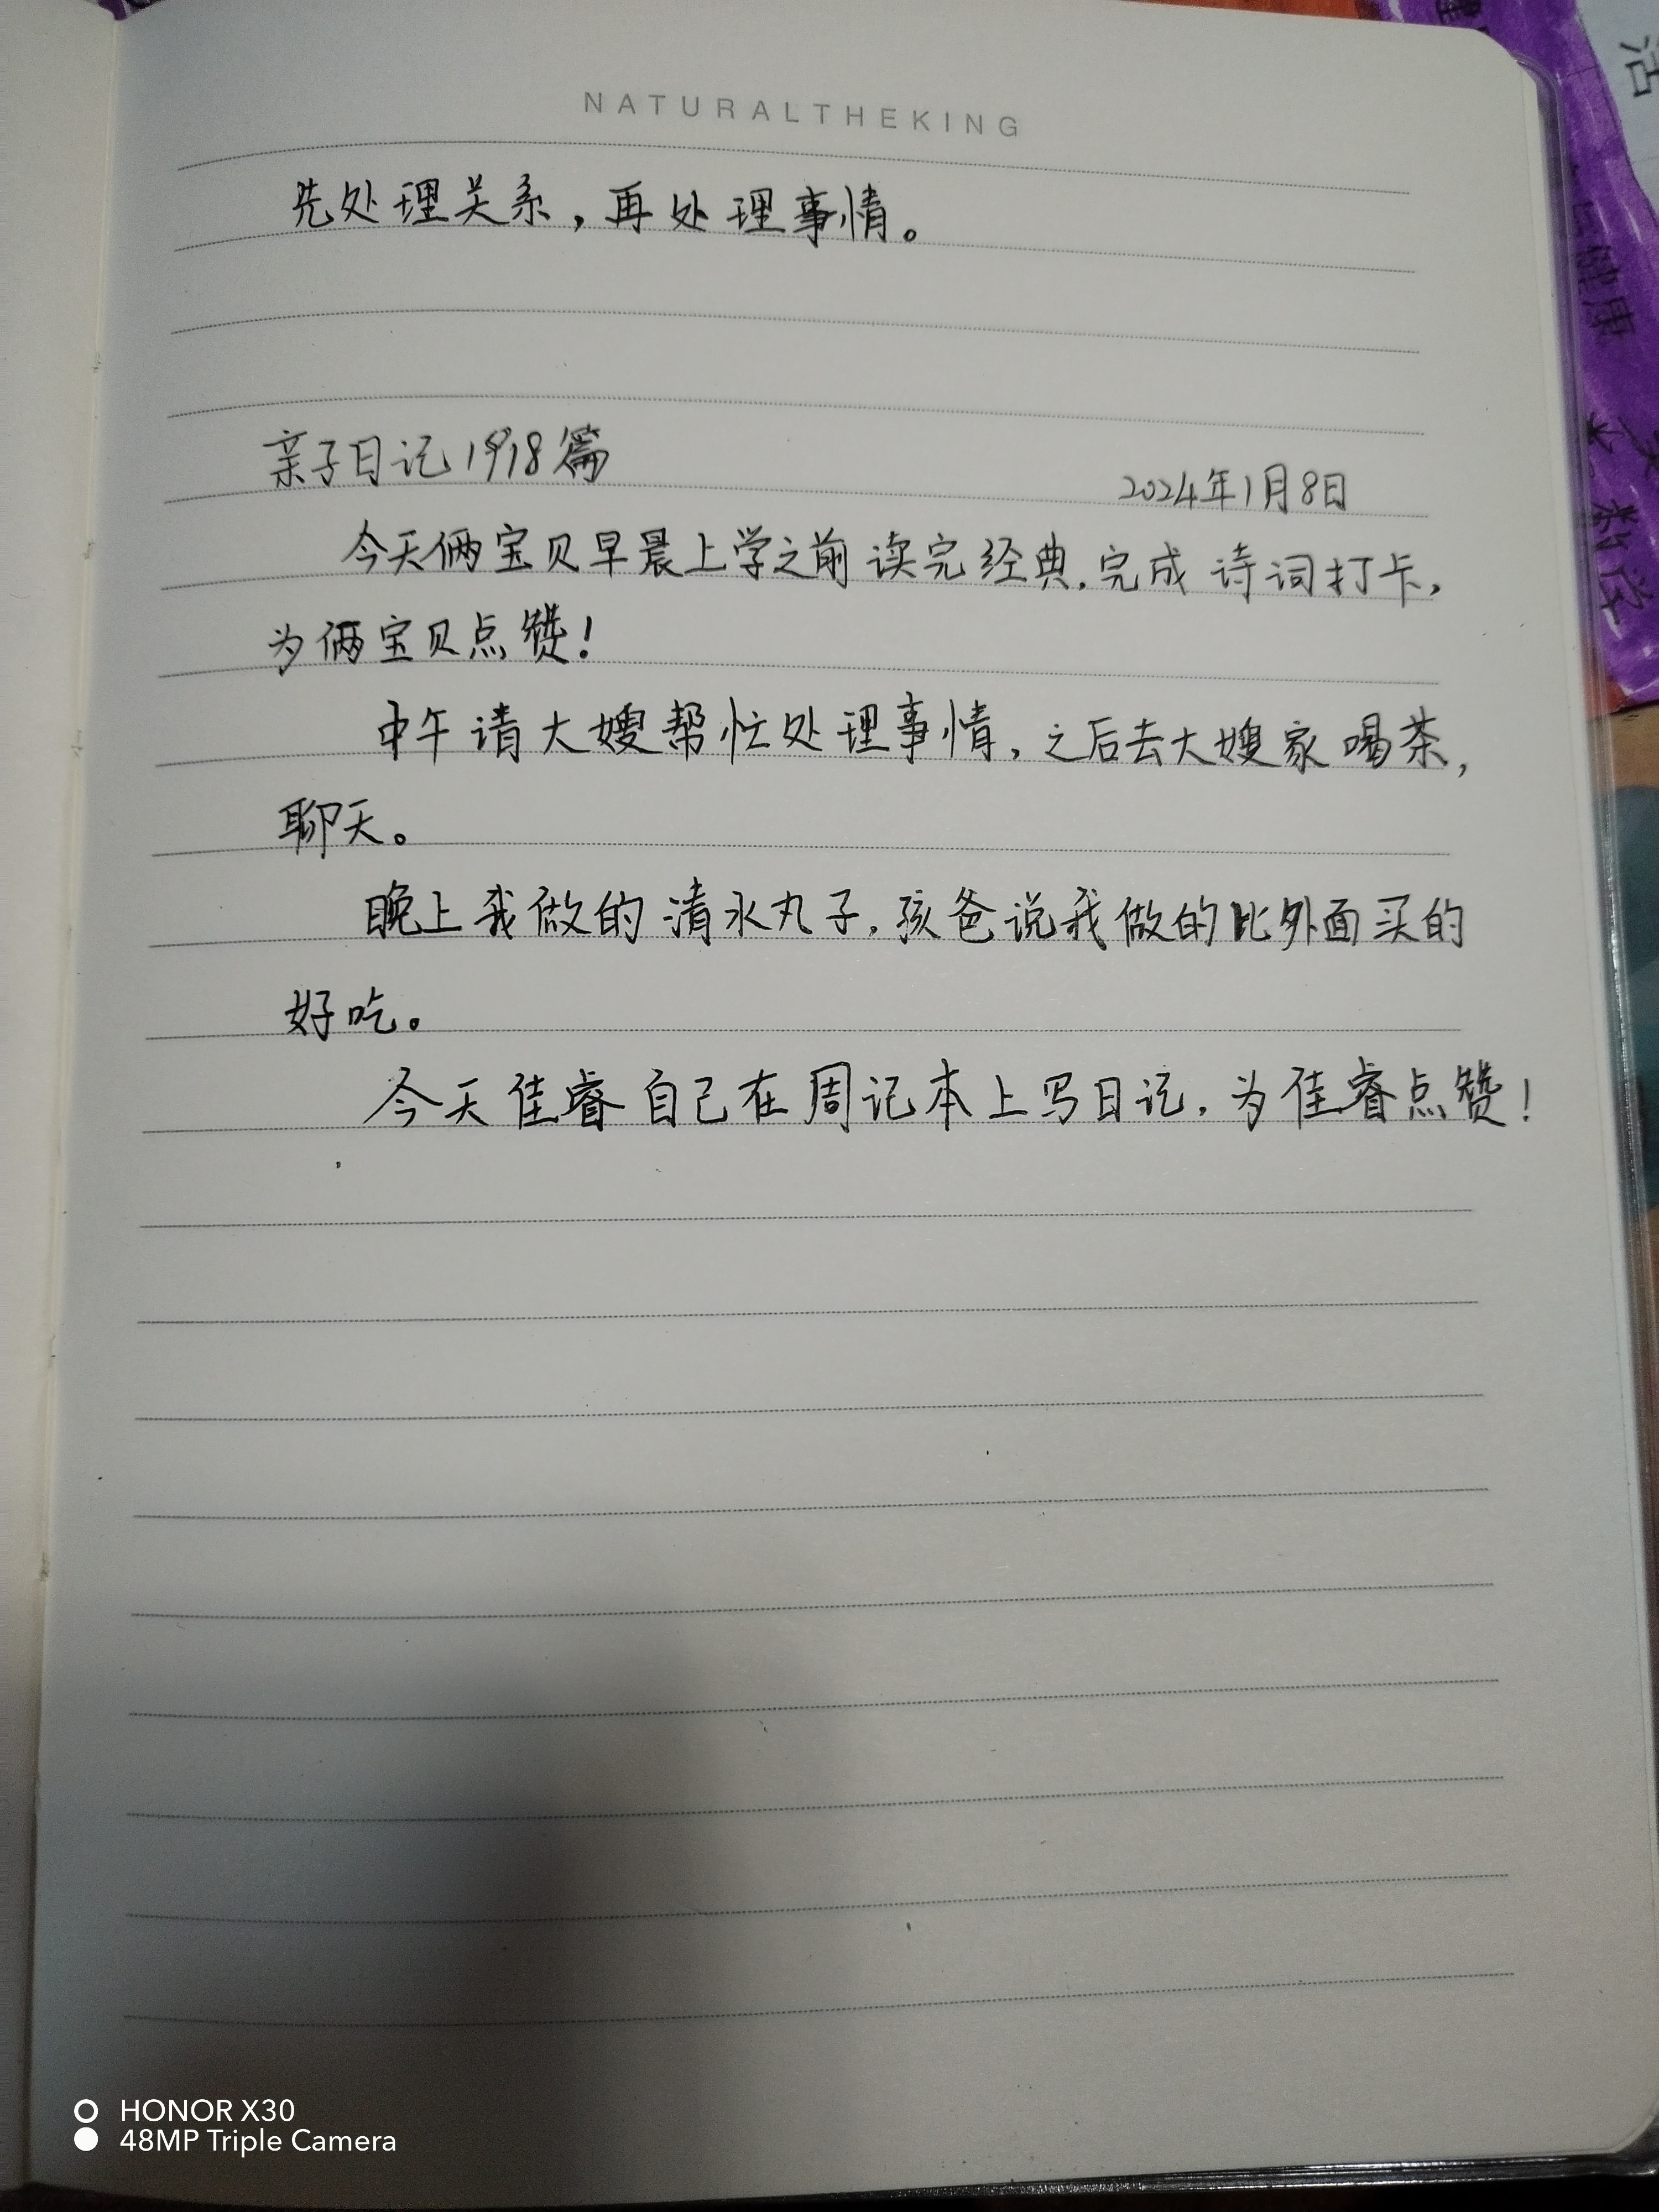 NATURALTHEKING
先处理关系，再处理事情。
亲子日记1918篇
2024年1月8日
今天俩宝贝早晨上学之前读完经典.完成诗词打卡,
为俩宝贝点赞!
中午请大嫂帮忙处理事情,之后去大嫂家喝茶,
聊天。
晚上我做的清水丸子.孩爸说我做的比外面买的
好吃。
今天佳睿自己在周记本上写日记.为佳睿点赞!
健康
HONOR X30
48MP Triple Camera